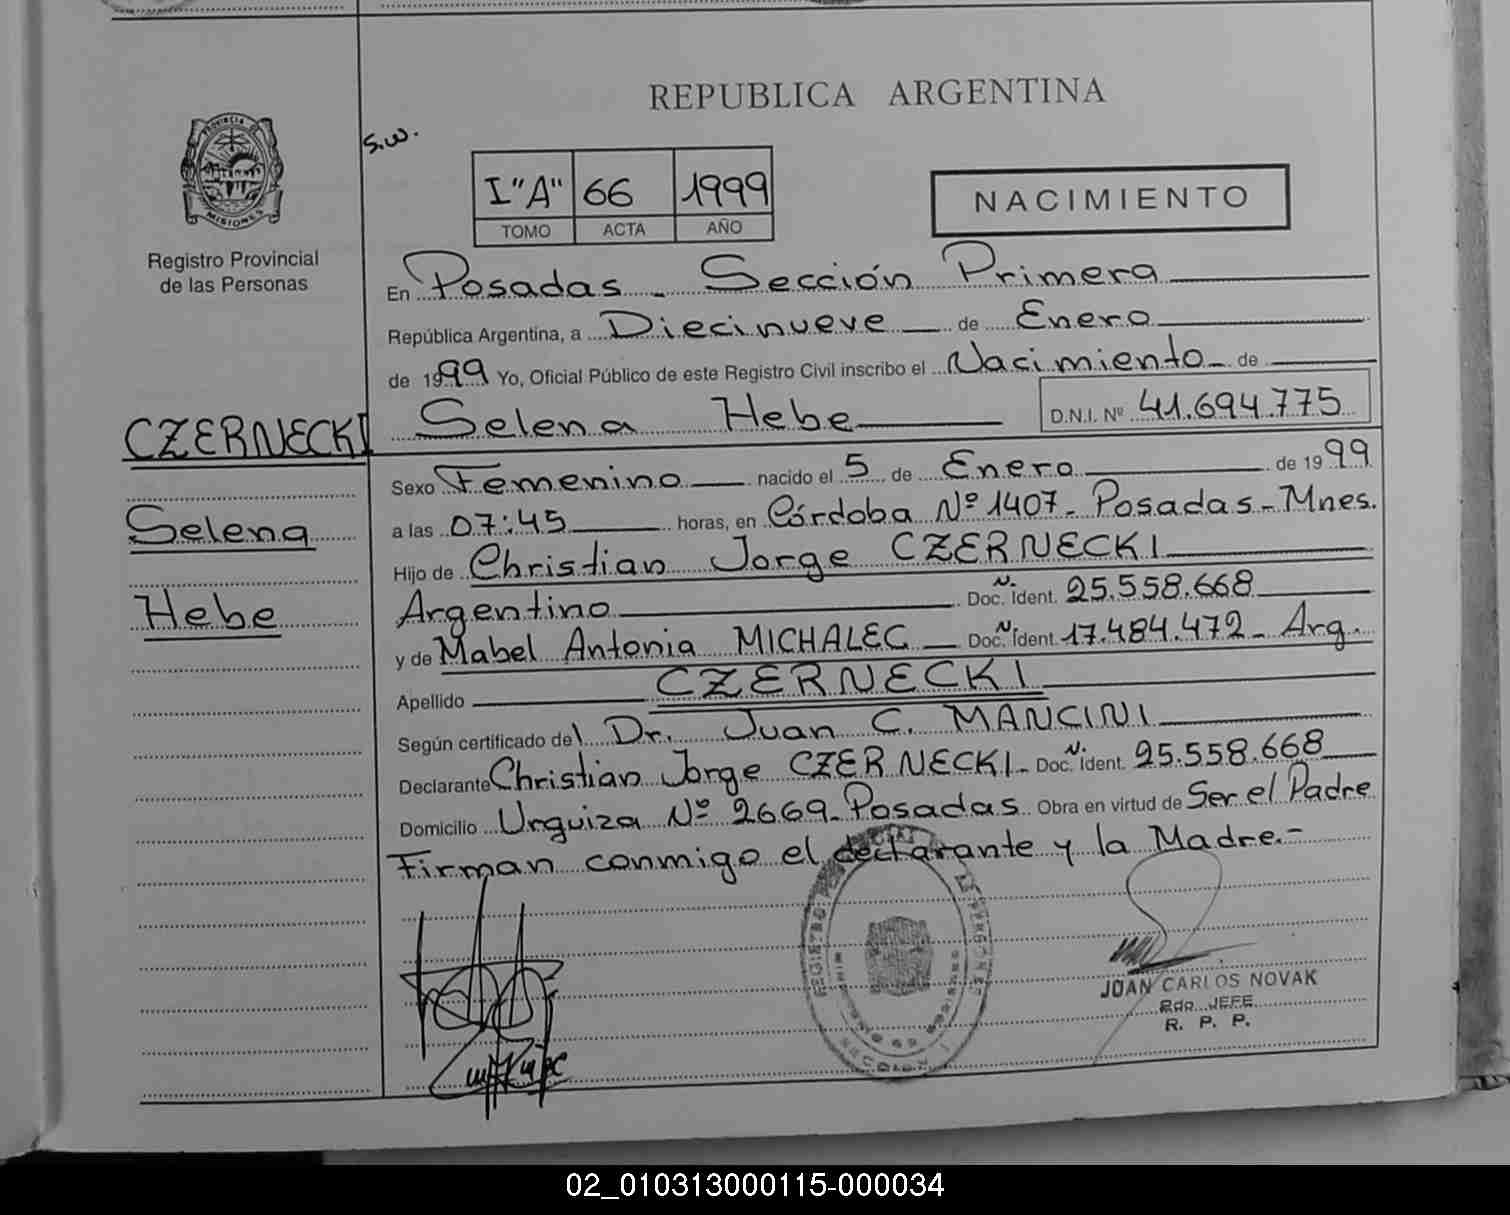 REPUBLICA ARGENTINA
PROVINCIA DE
MISIONES
S.W.
I"A" 66 1999
TOMO ACTA AÑO
NACIMIENTO
Registro Provincial
de las Personas
En Posadas - Sección Primera
República Argentina, a Diecinueve de Enero
de 1999 Yo, Oficial Público de este Registro Civil inscribo el Nacimiento - de
Selena Hebe D.N.I. Nº 41.694.775
CZERNECKI
Selena
Hebe
Sexo Femenino nacido el 5 de Enero de 1999
a las 07:45 horas, en Córdoba Nº 1407 - Posadas - Mnes.
Hijo de Christian Jorge CZERNECKI
Argentino Doc. N. Ident. 25.558.668
y de Mabel Antonia MICHALEC Doc. N. Ident. 17.484.472 - Arg.
Apellido CZERNECKI
Según certificado del Dr. Juan C. MANCINI
Declarante Christian Jorge CZERNECKI - Doc. N. Ident. 25.558.668
Domicilio Urquiza Nº 2669 - Posadas Obra en virtud de Ser el Padre
Firman conmigo el declarante y la Madre.-
JUAN CARLOS NOVAK
JEFE
R. P. P.
02_010313000115-000034